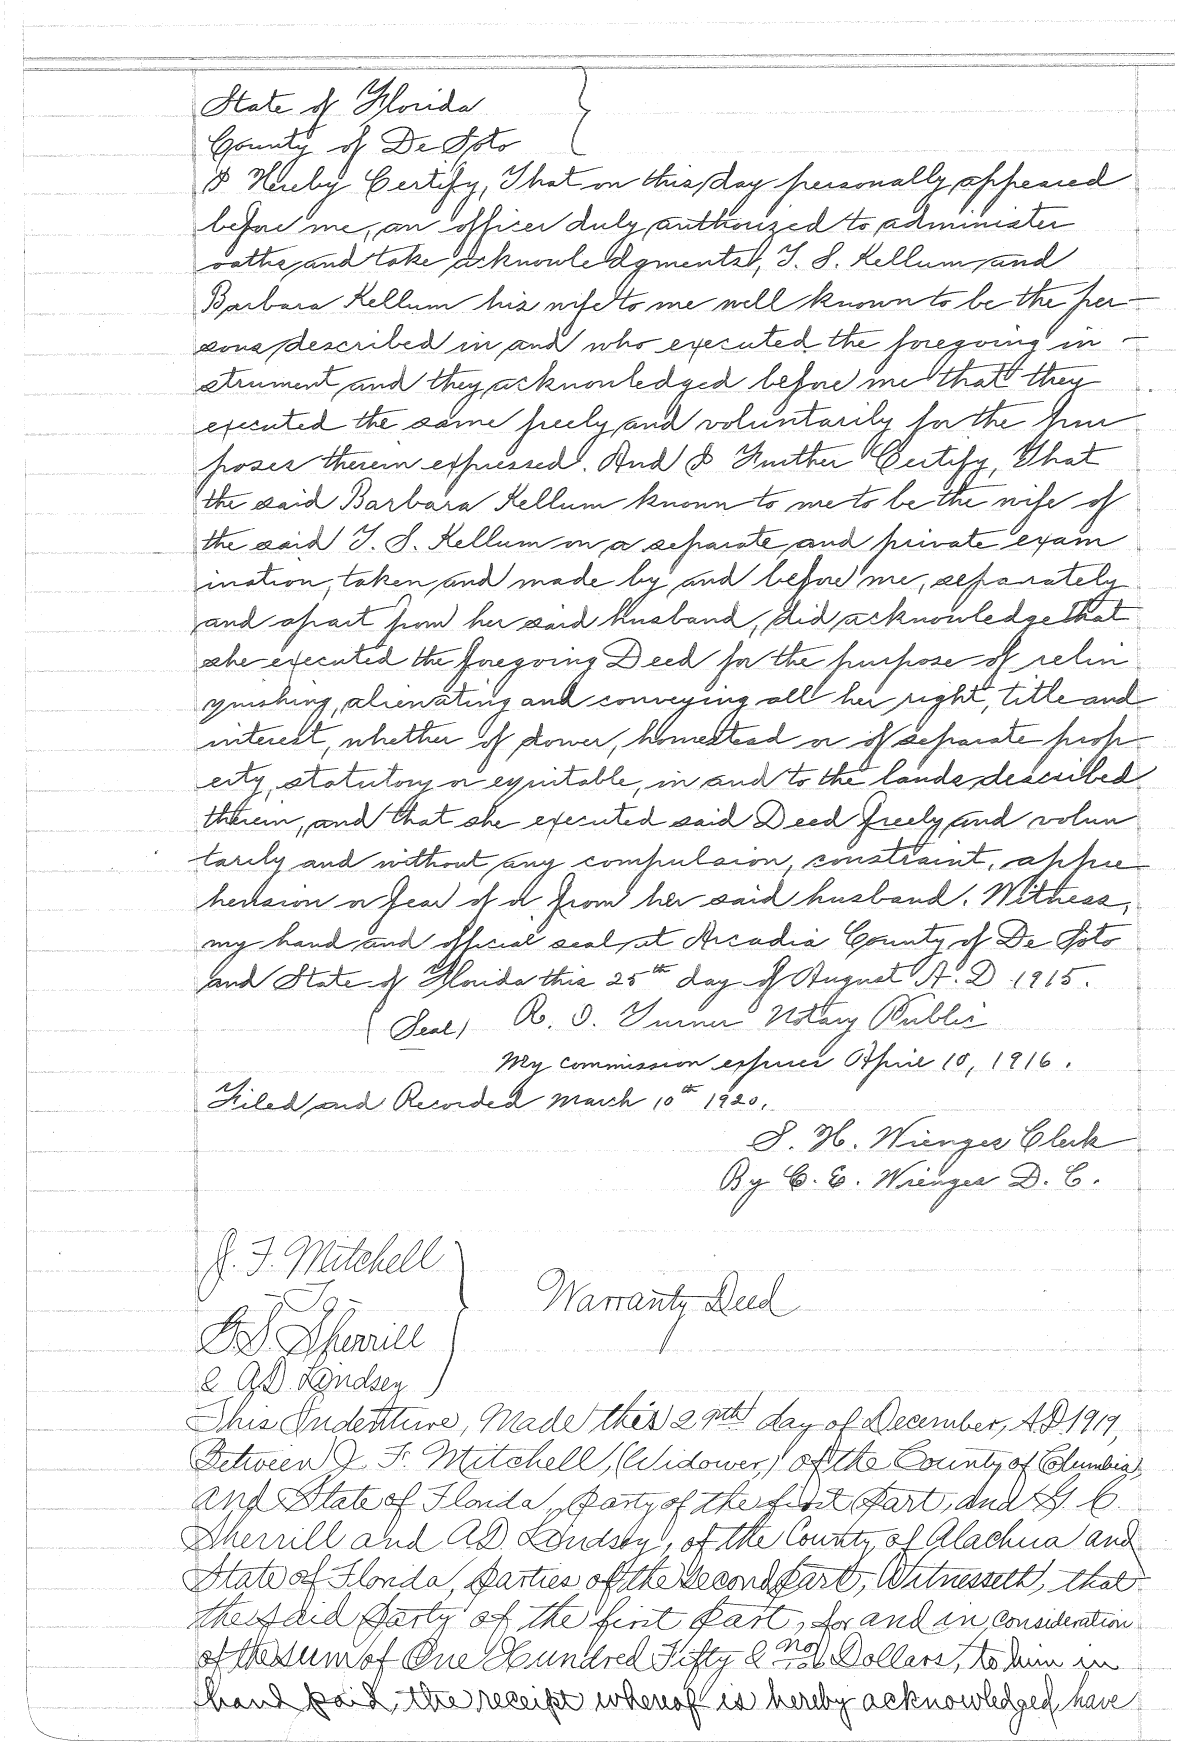 State of Florida
County of De Soto
I Hereby Certify, That on this day personally appeared
before me, an officer duly authorized to administer
oaths and take acknowledgments, T. S. Kellum and
Barbara Kellum his wife to me well known to be the per-
sons described in and who executed the foregoing in-
strument and they acknowledged before me that they
executed the same freely and voluntarily for the pur
poses therein expressed. And I Further Certify, That
the said Barbara Kellum known to me to be the wife of
the said T. S. Kellum on a separate and private exam
ination, taken and made by and before me, separately
and apart from her said husband, did acknowledge that
she executed the foregoing Deed for the purpose of relin
quishing, alienating and conveying all her right, title and
interest, whether of dower, homestead or of separate prop-
erty, statutory or equitable, in and to the lands described
therein, and that she executed said Deed freely and volun
tarily and without any compulsion, constraint, appre-
hension or fear of or from her said husband. Witness,
my hand and official seal at Arcadia County of De Soto
and State of Florida this 25th day of August A. D 1915.
(Seal) R. O. Turner Notary Public
My commission expires April 10, 1916.
Filed and Recorded March 10th 1920.
S. H. Wienges Clerk
By C. E. Wienges D. C.
J. F. Mitchell
-To-
Warranty Deed
Sherrill
& A D. Lindsey
This Indenture, Made this 29th day of December, A D 1919,
Between J. F. Mitchell, (Widower,) of the County of Columbia,
and State of Florida, Party of the first Part, and G. C.
Sherrill and A D. Lindsey, of the County of Alachua and
State of Florida, Parties of the Second Part, Witnesseth, that
the said Party of the first Part, for and in consideration
of the sum of One Hundred Fifty & no/100 Dollars, to him in
hand paid, the receipt whereof is hereby acknowledged, have